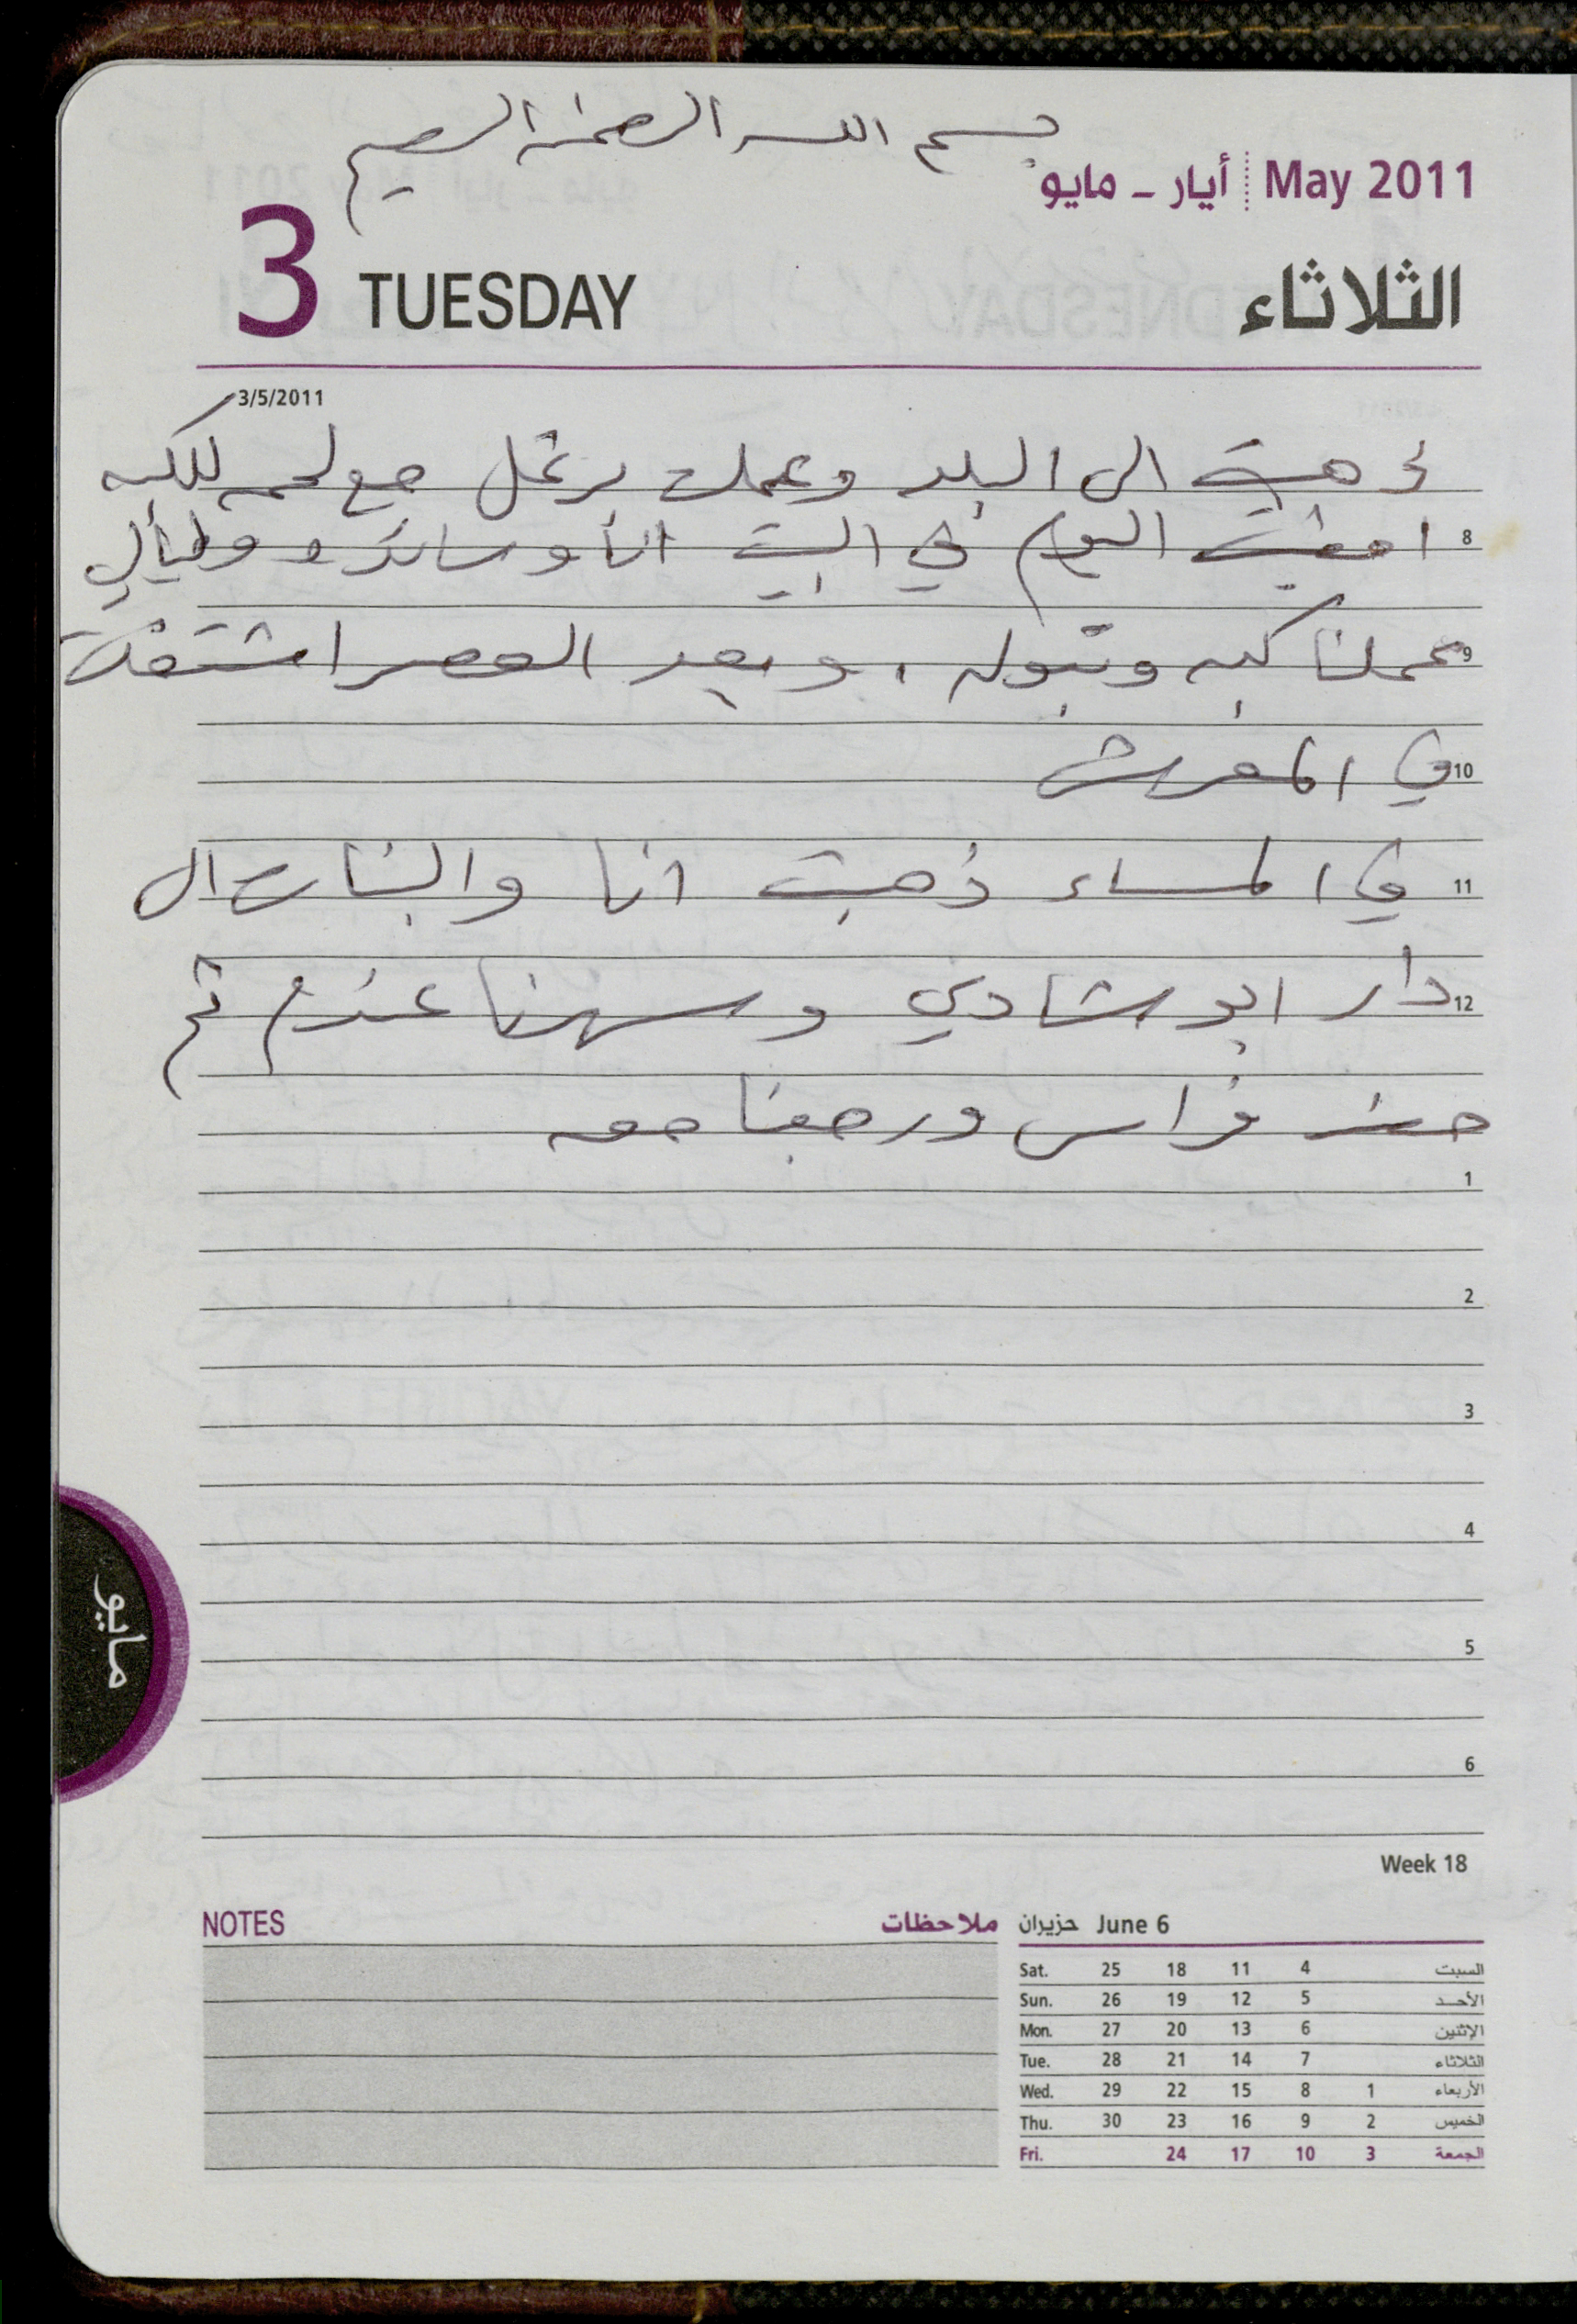 بسم الله الرحمن الرحيم
أيار - مايو May 2011
3 TUESDAY الثلاثاء
3/5/2011
ذهبت الى البلد وعملت برغل مع لحمه للكبه
8 امضيت اليوم في البيت انا وسائده وليالي
9 عملنا كبه وتبوله . وبعد العصر اشتغلت
10 في المفرش
11 في المساء ذهبت انا والبنات الى
12 دار ابو شادي وسهرنا عندهم ثم
حضر فراس ورجعنا معه
1
2
3
4
5
6
مايو
Week 18
NOTES ملاحظات
حزيران June 6
Sat. 25 18 11 4 السبت
Sun. 26 19 12 5 الأحد
Mon. 27 20 13 6 الإثنين
Tue. 28 21 14 7 الثلاثاء
Wed. 29 22 15 8 1 الأربعاء
Thu. 30 23 16 9 2 الخميس
Fri. 24 17 10 3 الجمعة